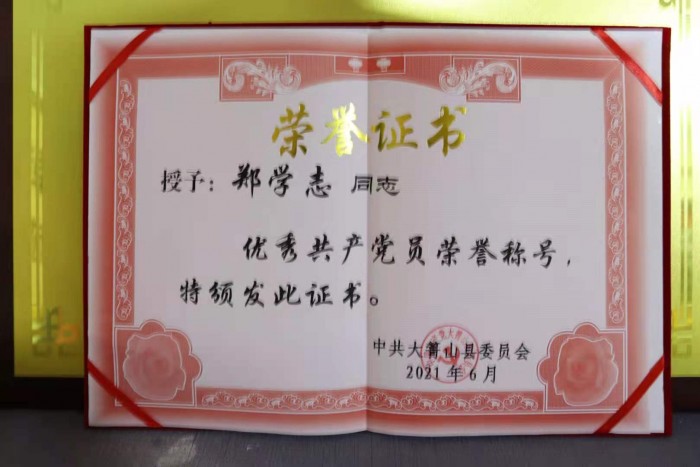 荣誉证书
授予：郑学志 同志
优秀共产党员荣誉称号，
特颁发此证书。
中共大箐山县委员会
2021年6月